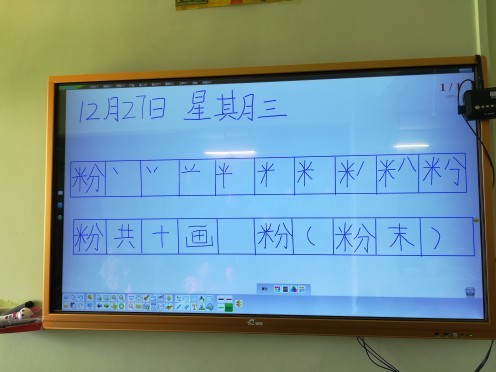 12月27日 星期三
1/1
粉 丶 丷 䒑 半 米 米 米丿 米八 米分
粉 共 十 画 粉 ( 粉 末 )